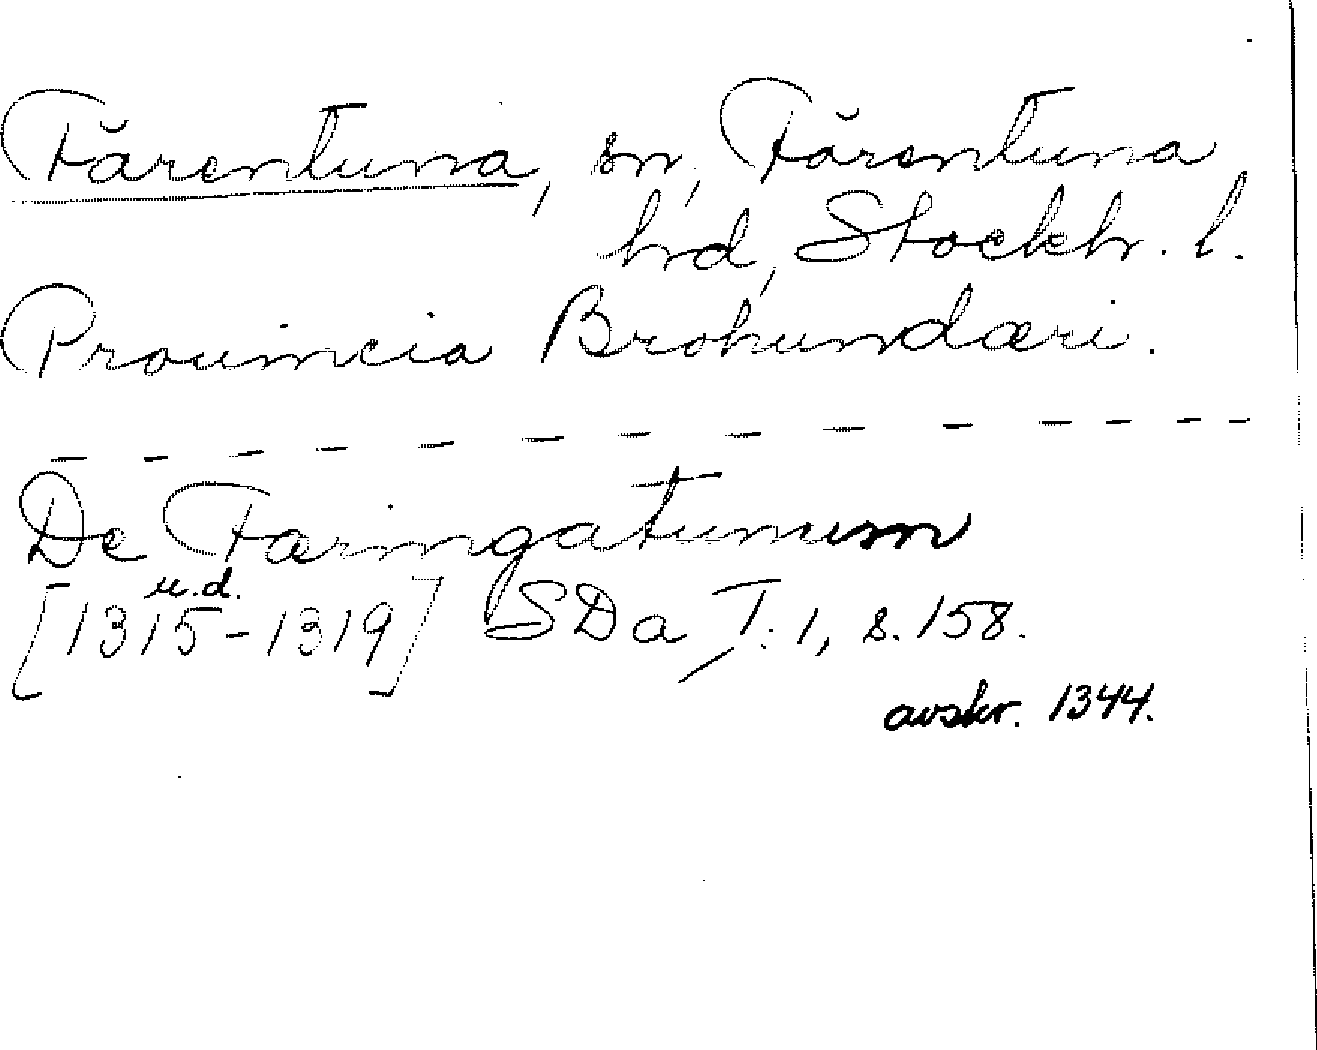 Färentuna, sn, Färentuna
hd, Stockh. l.
Prouincia Brohundæri.
- - - - - - - - - - - - -
De Færingatunum
[1315-1319] u.d. SDa I: 1, s. 158.
avskr. 1344.